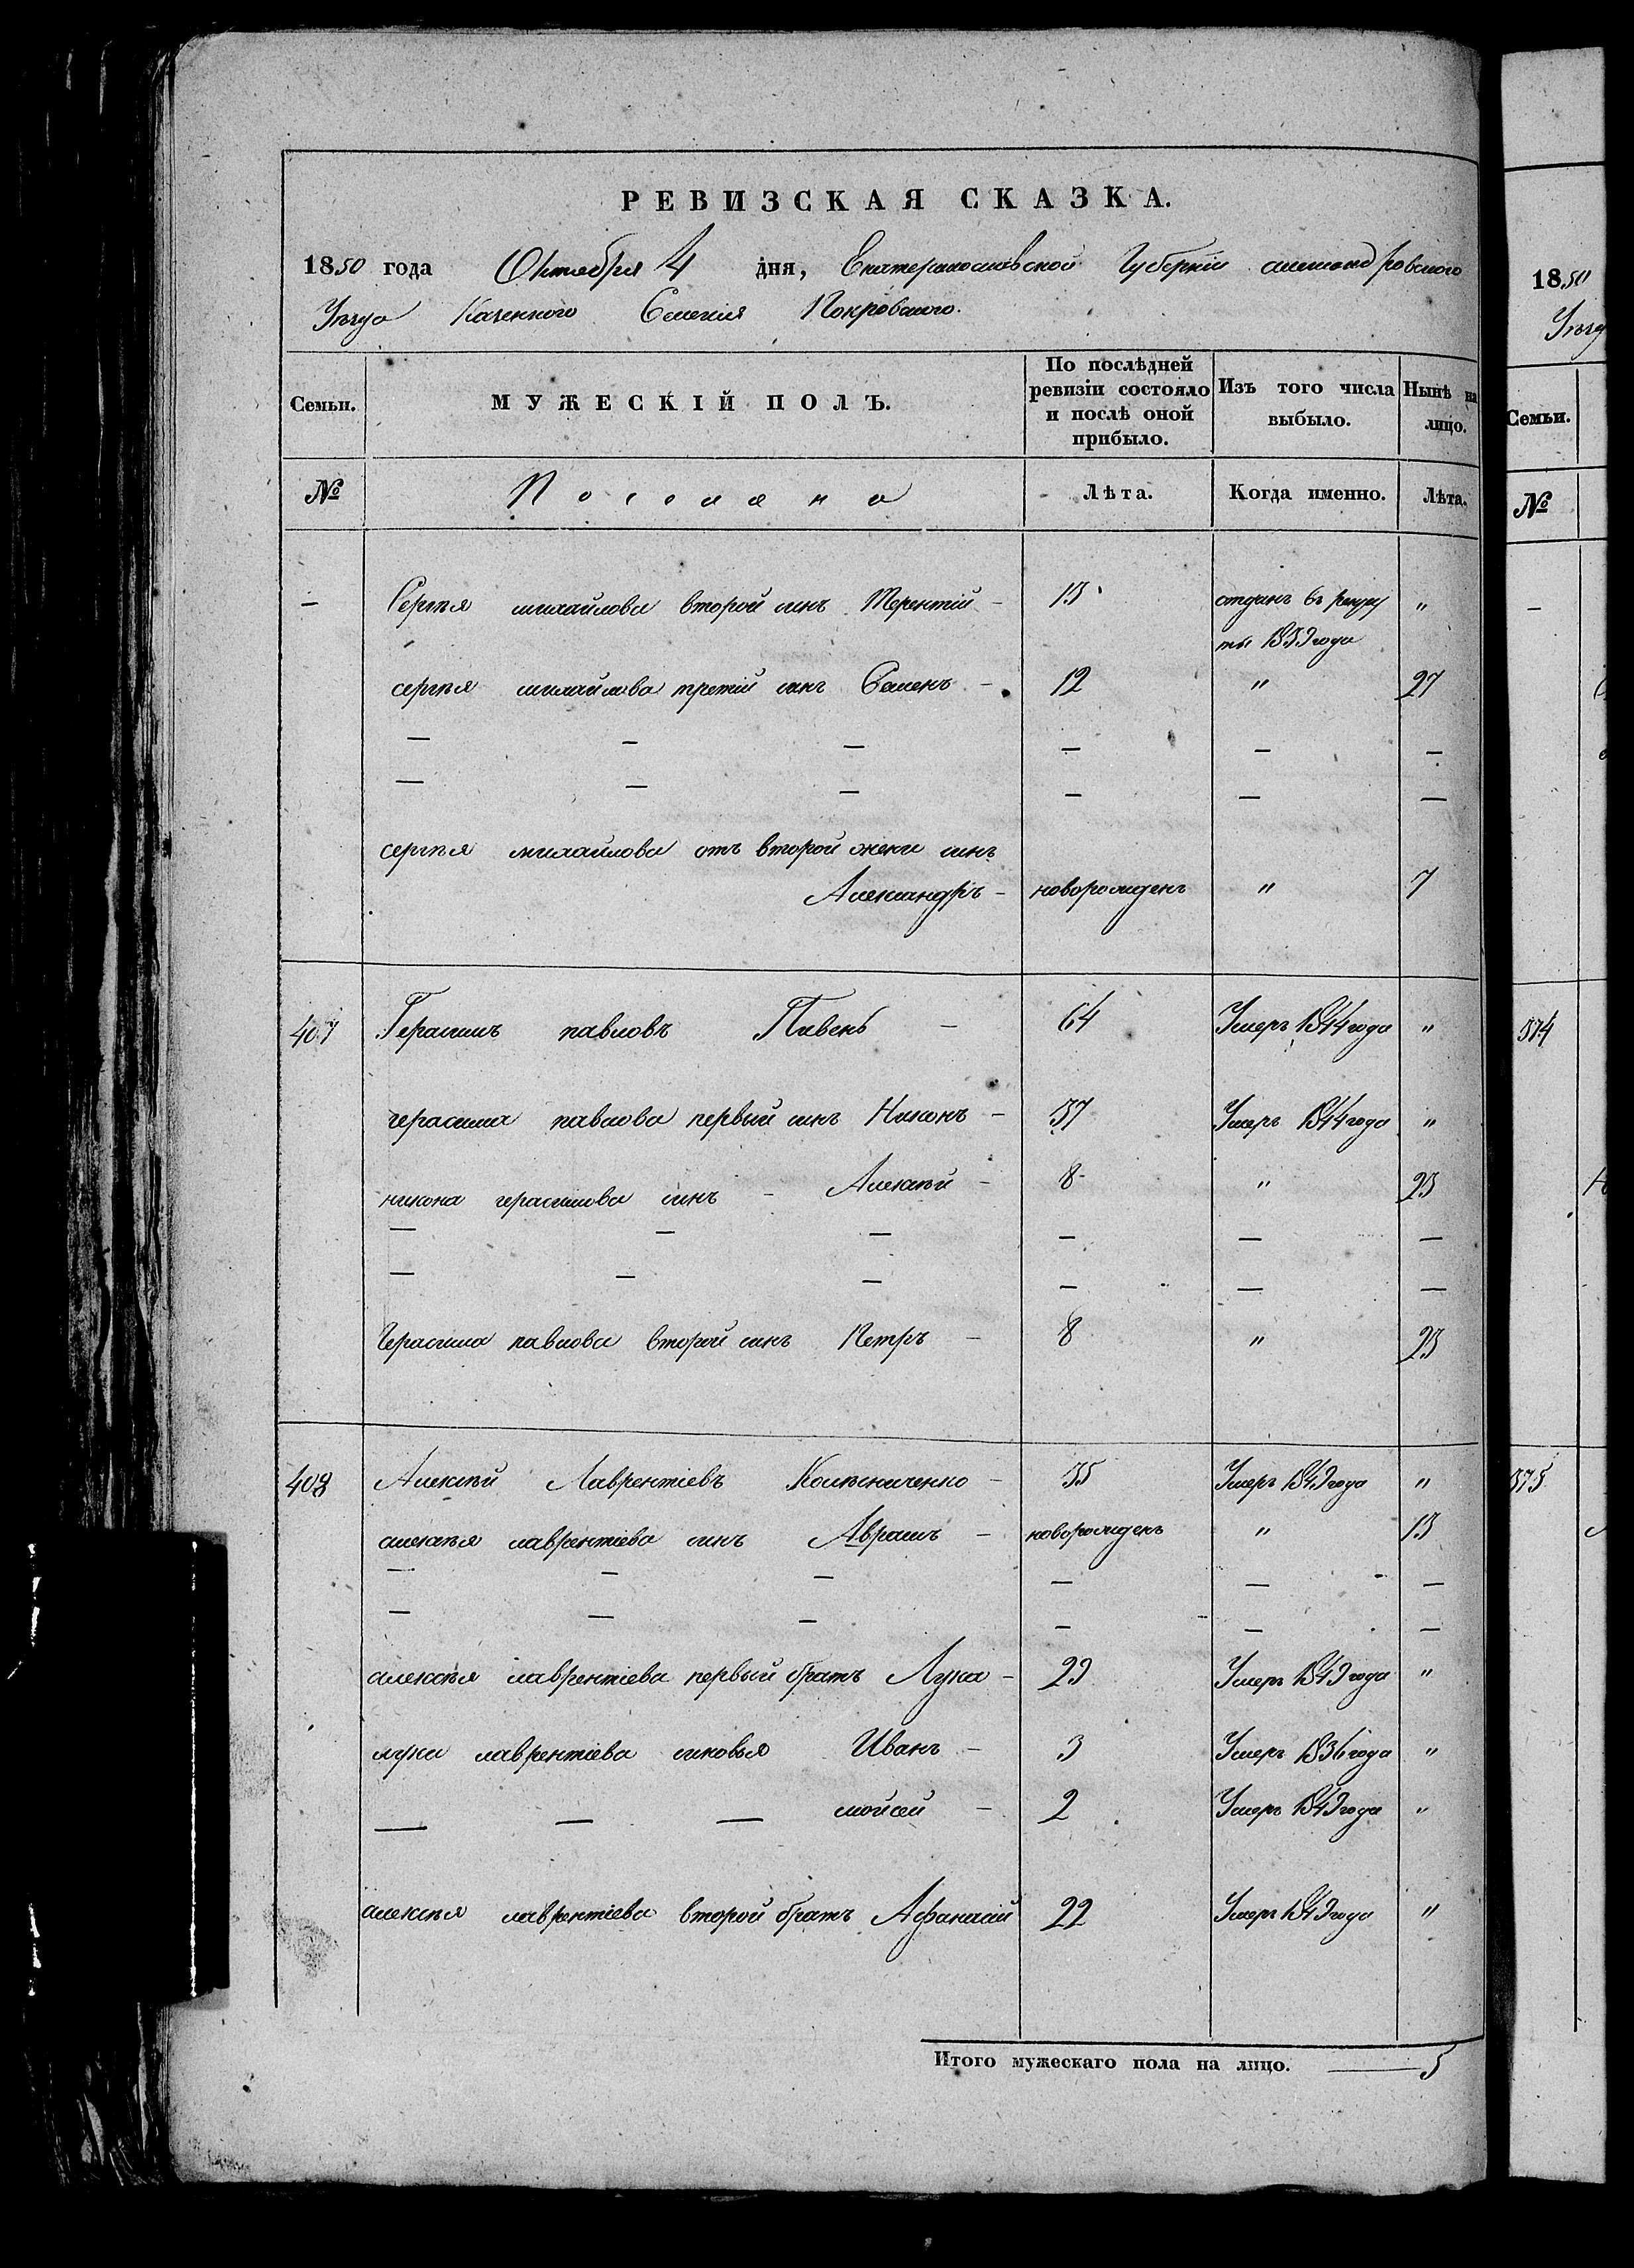 РЕВИЗСКАЯ СКАЗКА.
1850 года Октября 4 дня, Екатеринославской Губернии александровского
Уезда Казенного Селения Покровского.
Семьи. МУЖЕСКІЙ ПОЛЪ. По послѣдней ревизіи состояло и послѣ оной прибыло. Изъ того числа выбыло. Нынѣ на лицо.
№ Поселяне Лѣта. Когда именно. Лѣта.
— Сергѣя михайлова второй синъ Терентій — 13 отданъ въ рекру "
ты 1839 года
сергѣя михайлова третій синъ Семенъ — 12 " 27
— — — — — —
— — — — — —
сергѣя михайлова отъ второй жени синъ
Александръ — новорожденъ " 7
407 Герасимъ павловъ Пивень — 64 Умеръ 1844 года "
герасима павлова первый синъ Никонъ — 37 Умеръ 1844 года "
никона герасимова синъ — Алексѣй — 8 " 23
— — — — — —
— — — — — —
Герасима павлова второй синъ Петръ — 8 " 23
408 Алексѣй Лаврентіевъ Колѣсниченко — 35 Умеръ 1849 года "
алексѣя лаврентіева синъ Аврамъ — новорожденъ " 13
— — — — — —
— — — — — —
алексѣя лаврентіева первый братъ Лука — 29 Умеръ 1849 года "
луки лаврентіева синовья Иванъ — 3 Умеръ 1836 года "
— — — мойсей — 2 Умеръ 1849 года "
алексѣя лаврентіева второй братъ Афанасій 22 Умеръ 1849 года "
Итого мужескаго пола на лицо. — 5
1850
Уезд
Семьи.
№
—
374
375